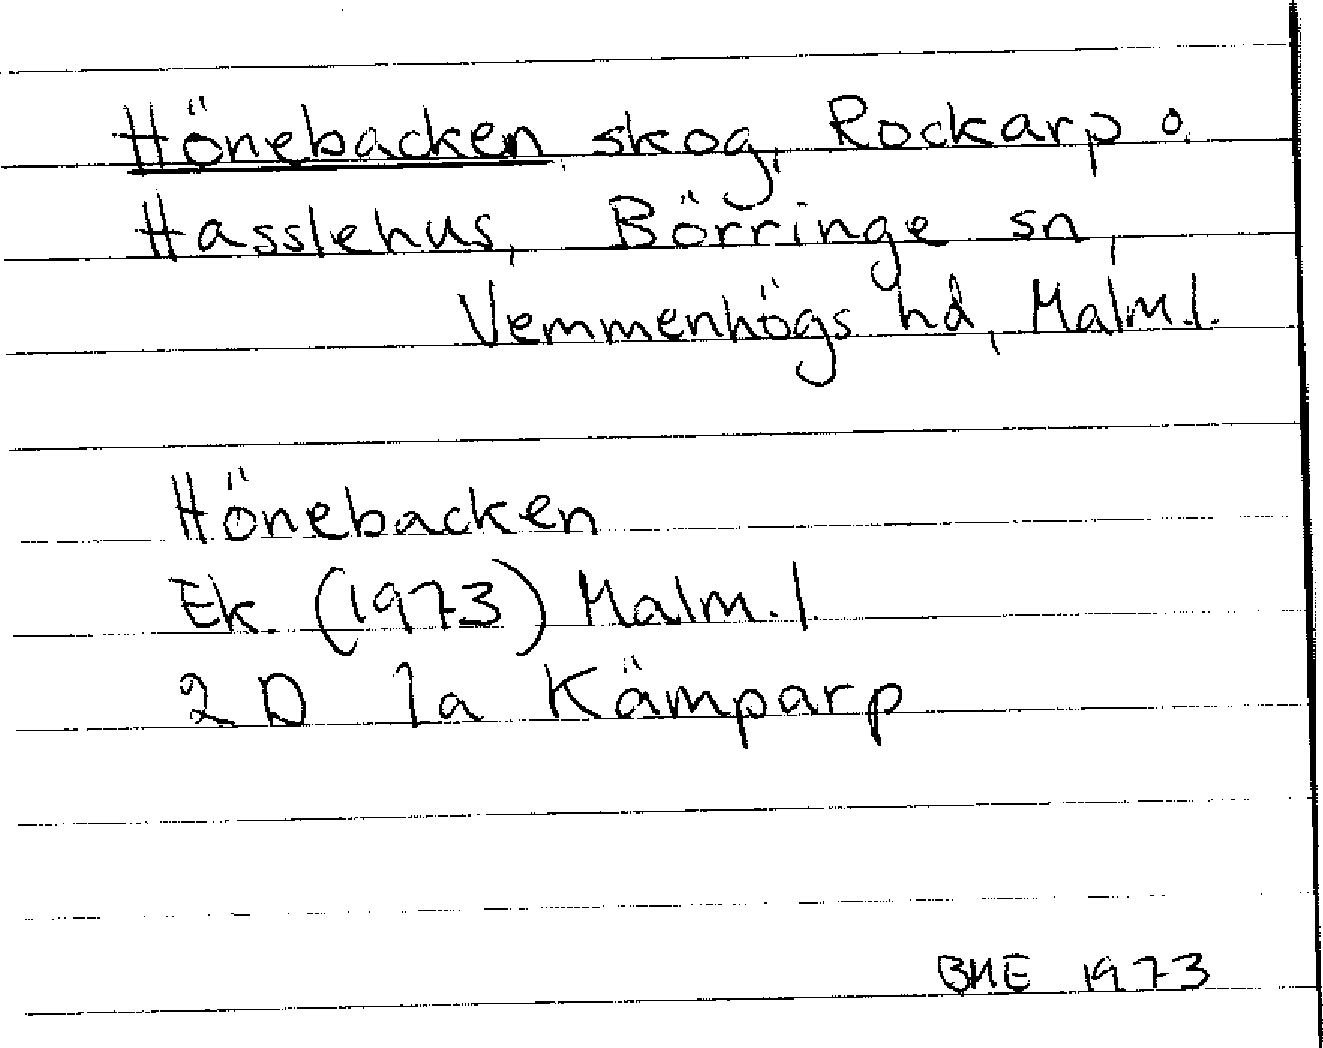 Hönebacken skog, Rockarp o.
Hasslehus, Börringe sn,
Vemmenhögs hd, Malm.l.
Hönebacken
Ek. (1973) Malm.l.
2D 1a Kämparp
BME 1973